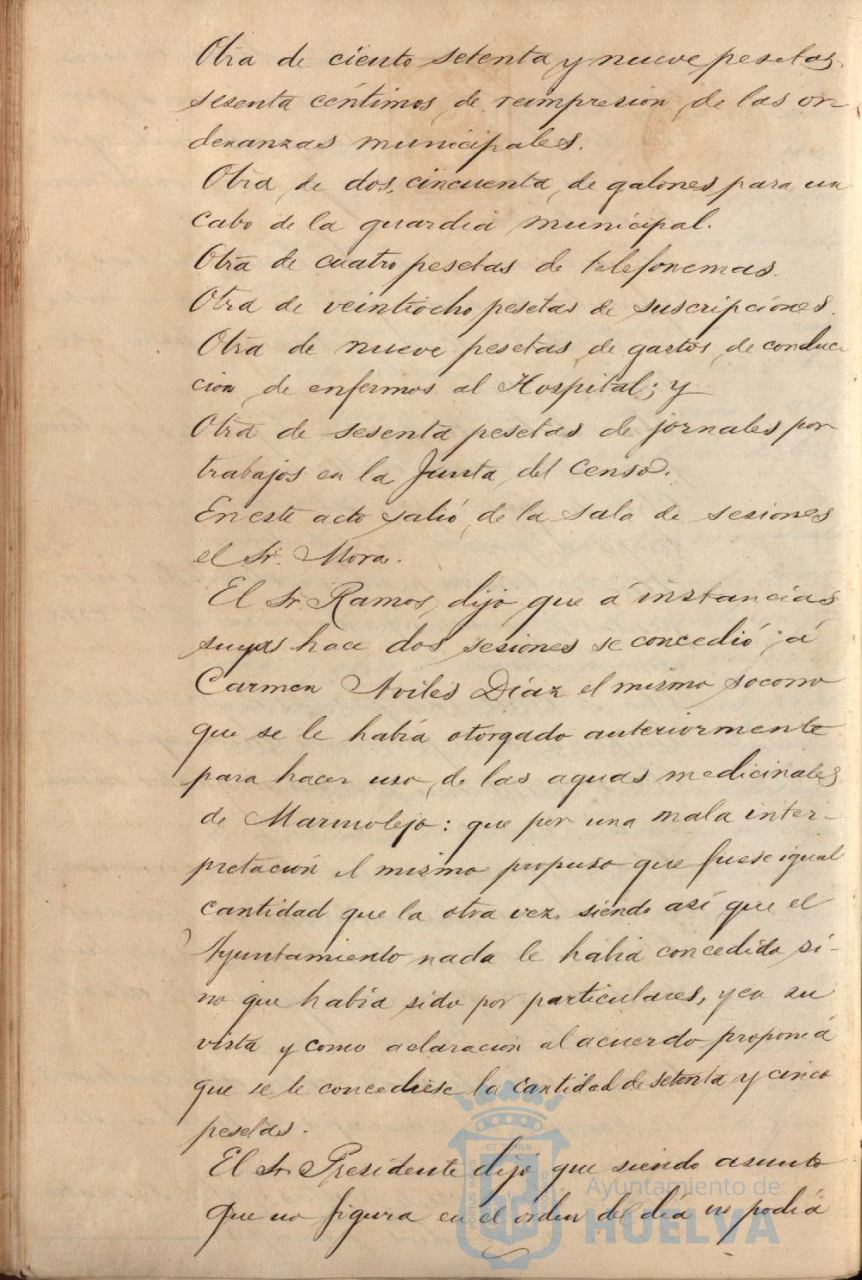 Otra de ciento setenta y nueve pesetas,
sesenta céntimos, de reimpresion, de las or
denanzas municipales.
Otra, de dos, cincuenta, de galones, para un
cabo de la guardia municipal.
Otra de cuatro pesetas de telefonemas.
Otra de veintiocho pesetas de suscripciones.
Otra de nueve pesetas, de gastos, de conduc
cion, de enfermos al Hospital; y
Otra de sesenta pesetas de jornales por
trabajos en la Junta, del Censo.
En este acto salió, de la sala de sesiones
el Sr. Mora.
El Sr. Ramos, dijo, que á instancias
suyas hace dos sesiones se concedió, á
Carmen Aviles Díaz el mismo socorro
que se le había otorgado anteriormente
para hacer uso, de las aguas medicinales
de Marmolejo: que por una mala inter-
pretación el mismo propuso que fuese igual
cantidad que la otra vez, siendo así que el
Ayuntamiento nada le habia concedido, si-
no que había sido por particulares, y en su
vista y como aclaracion al acuerdo proponiá
que se le concediese la cantidad de setenta y cinco
pesetas.
El Sr. Presidente dijo que siendo asunto
que no figura en el orden del dia no podiá
Ayuntamiento de
HUELVA